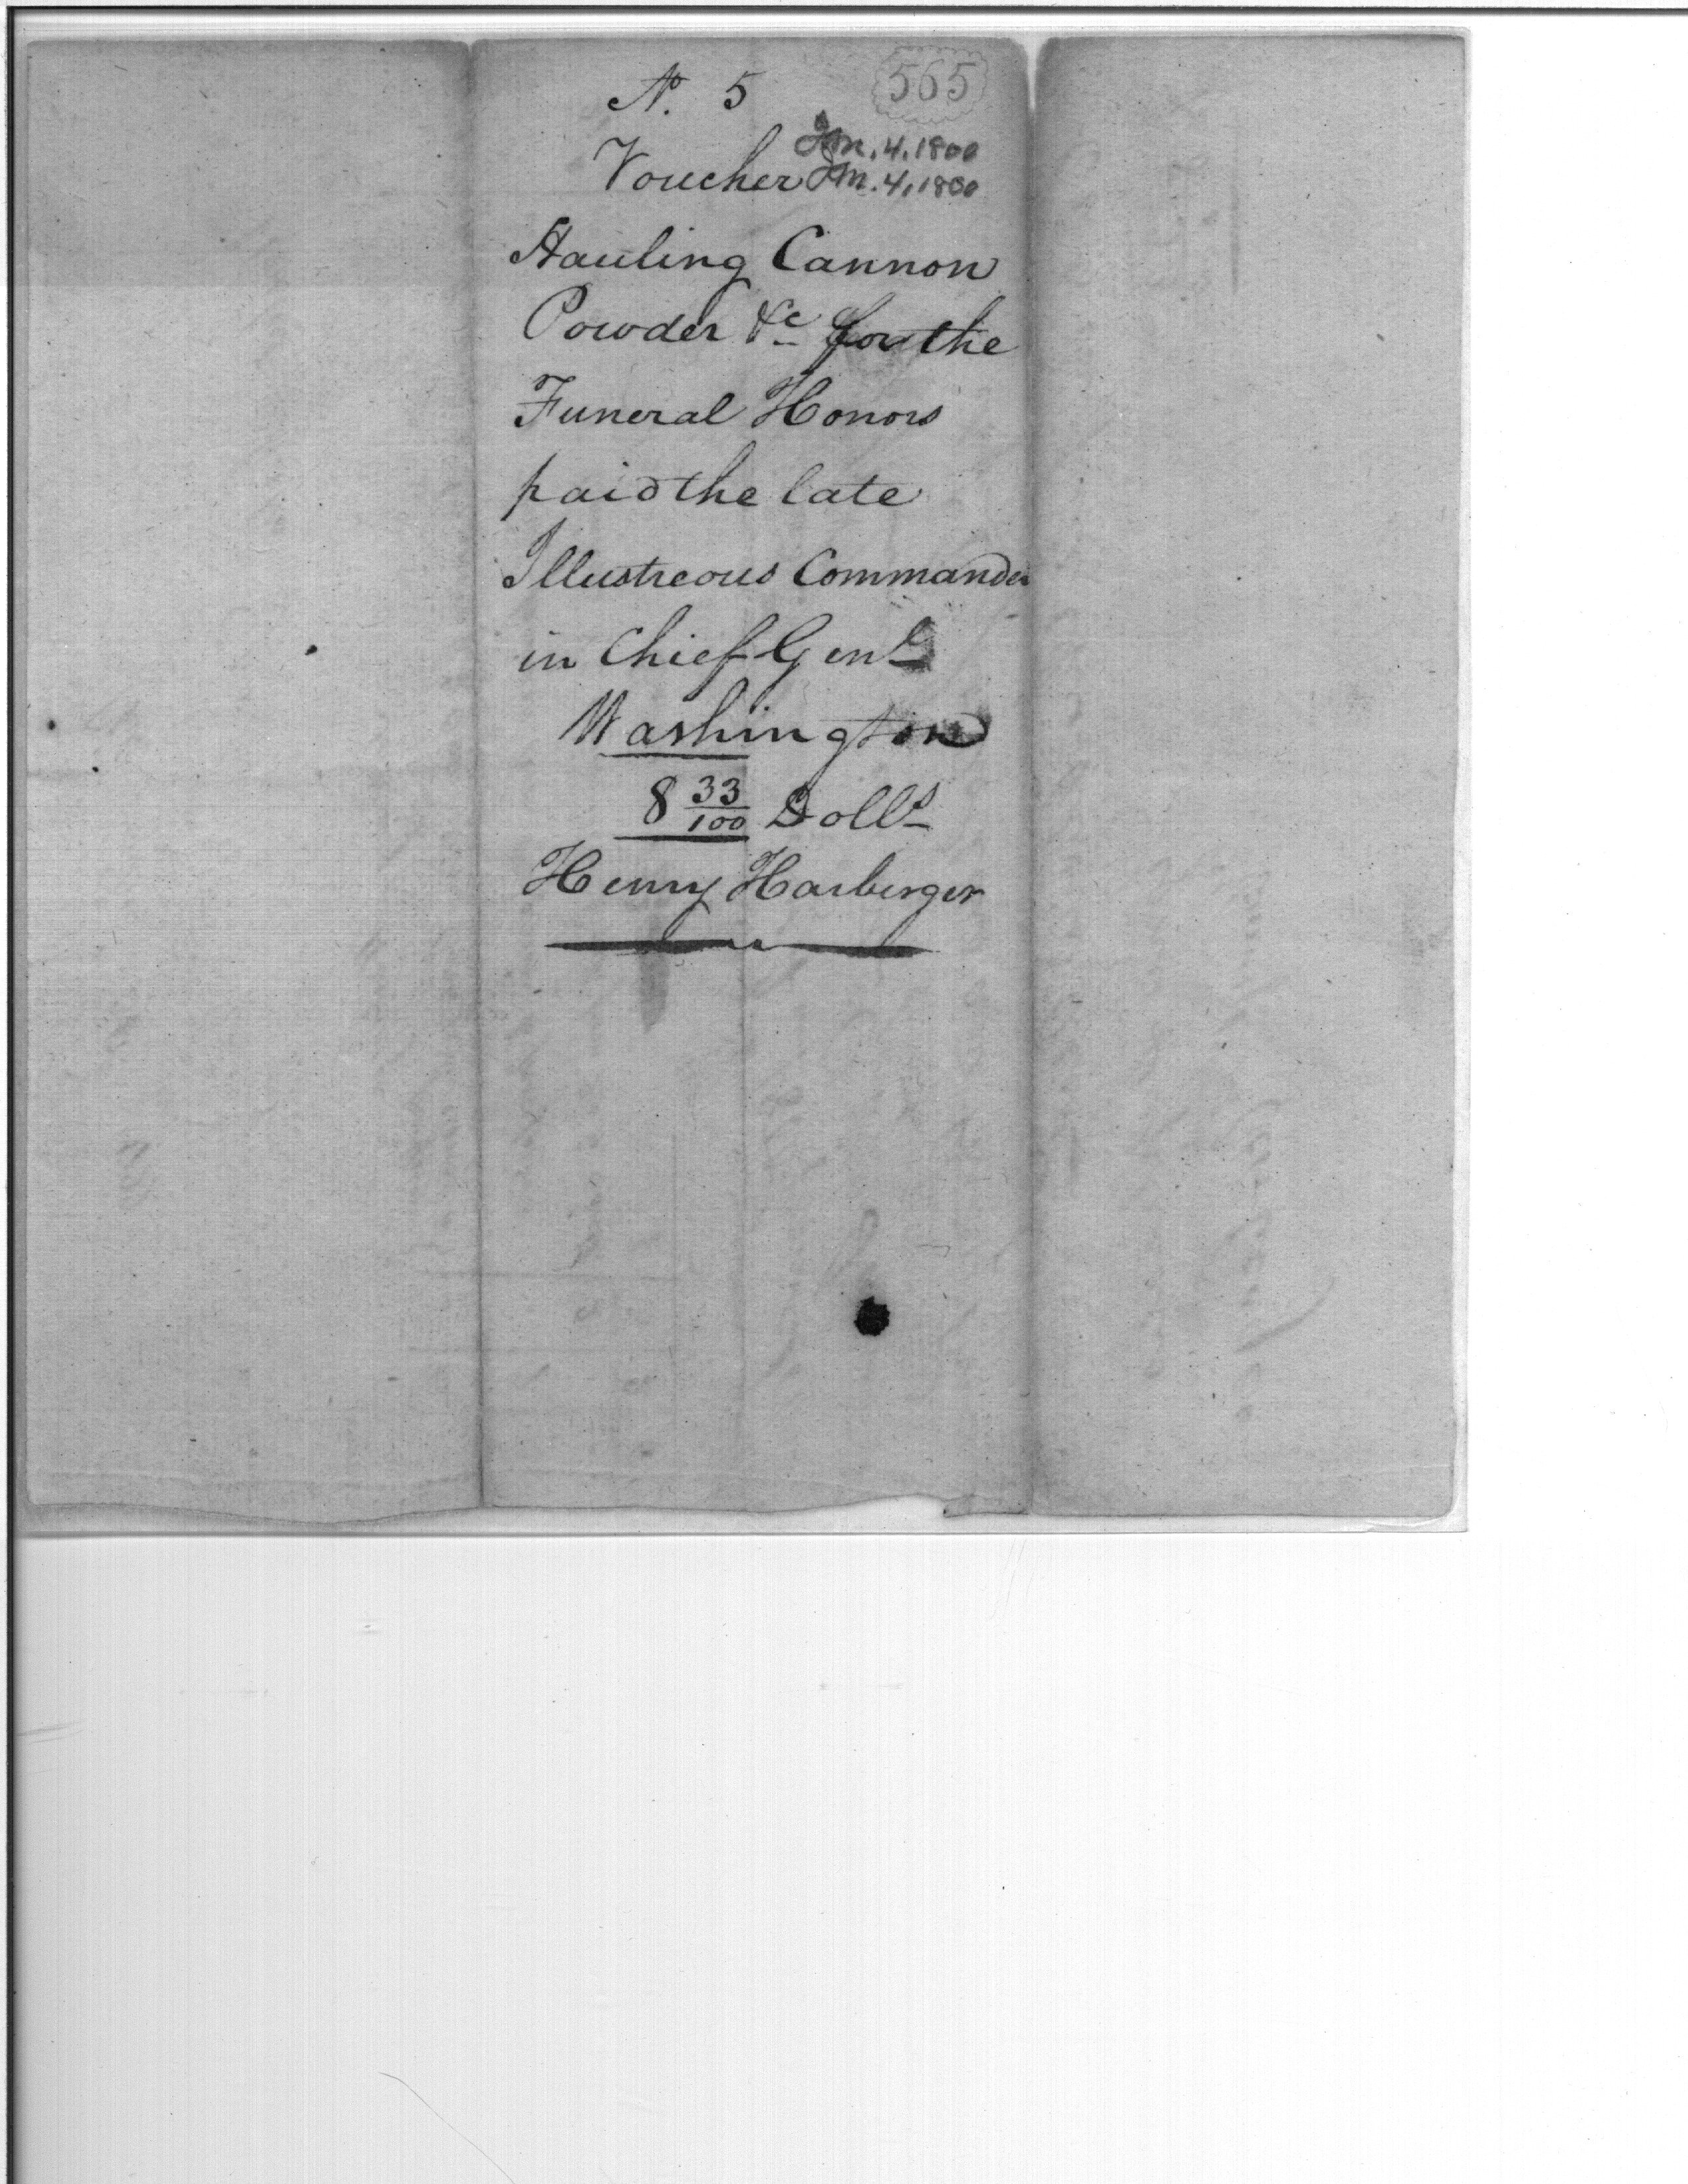 No. 5
565
Jan. 4. 1800
Voucher Jan. 4, 1800
Hauling Cannon
Powder &c for the
Funeral Honors
paid the late
Illustreous Commander
in Chief Genl
Washington
8 33/100 Dolls
Henry Harberger